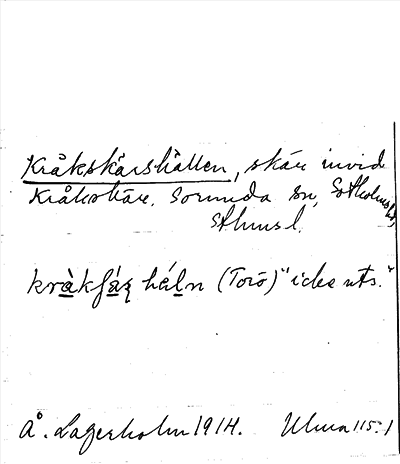 Kråkskärshällen, skär invid
Kråkskär. Sorunda sn, Sotholms hd,
Sthms l.
kràkʃáʐ héln (Torö) "icke uts."
Å. Lagerholm 1914. Ulma 115:1